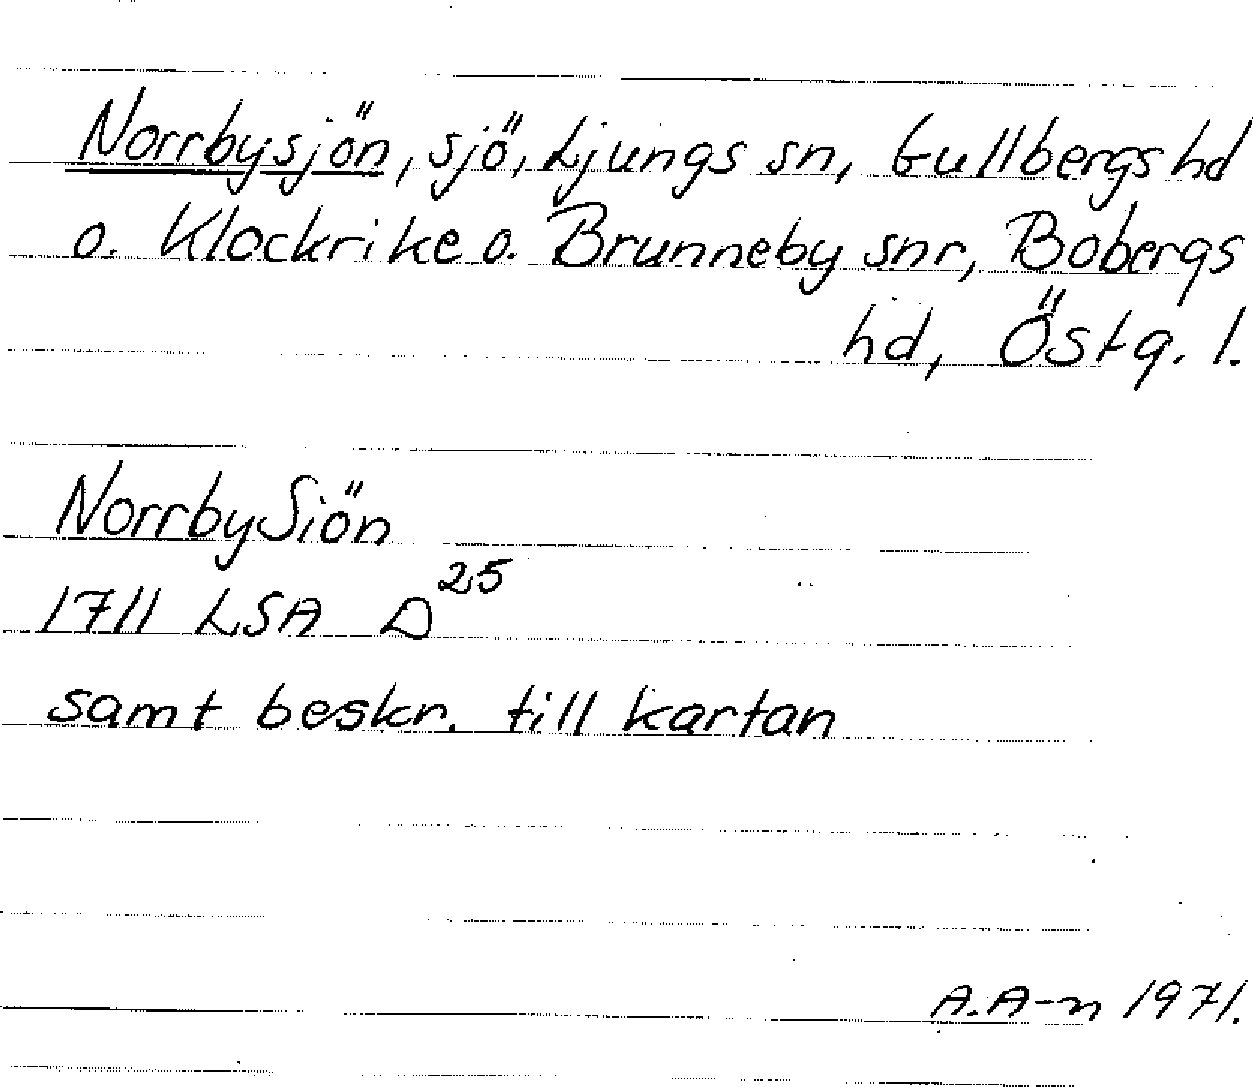 Norrbysjön, sjö, Ljungs sn, Gullbergs hd
o. Klockrike o. Brunneby snr, Bobergs
hd, Östg. l.
NorrbySiön
1711 LSA D25
samt beskr. till kartan
A.A-n 1971.